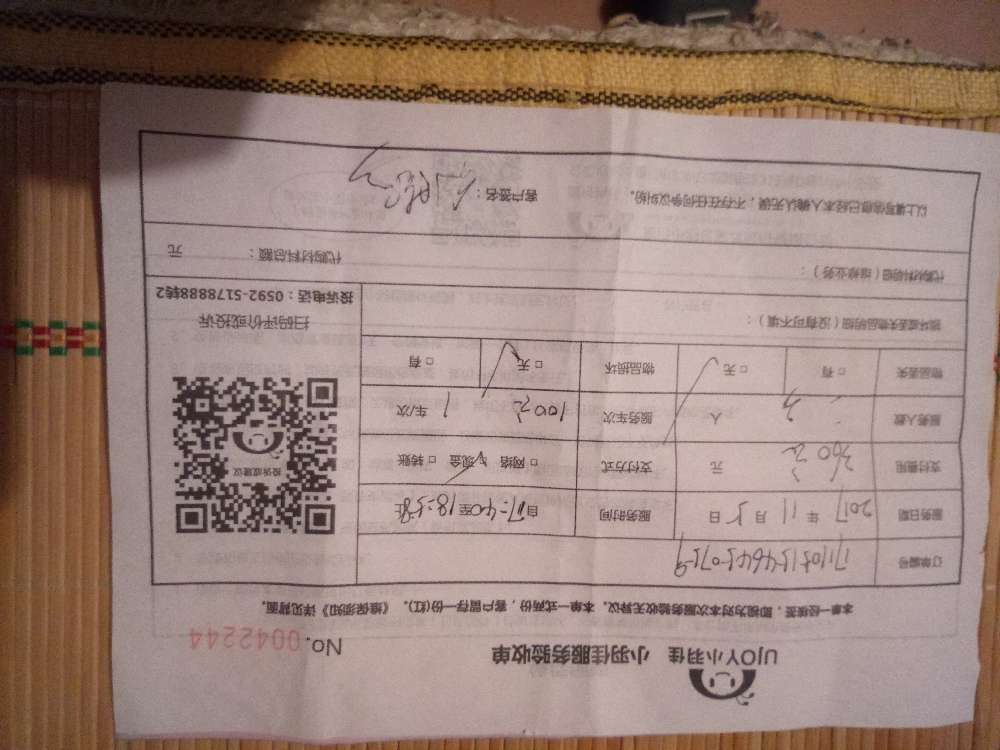 UJOY小羽佳 小羽佳服务验收单
No. 0042244
本单一经核签,即视为对本次服务验收无异议。本单一式两份,客户留存一份(红)。《维保须知》详见背面。
订单编号
服务日期 2017 年 11 月 5 日 服务时间 自17:40至18:5止
支付费用 360元 元 支付方式 □网络 □现金 □转账
服务人数 人 服务车次 100元 1 车/次
物品丢失 □有 □无 物品损坏 □无 □有
损坏或丢失物品明细(没有可不填):
代购材料明细(维修业务): 代购材料总额: 元
以上填写信息已经本人确认无误,不存在任何争议纠纷。 客户签名:
投诉或建议
扫码评价或投诉
投诉电话:0592-5178888转2